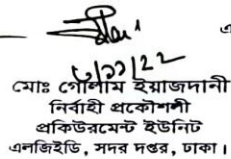 ৮/১১/২২
মোঃ গোলাম ইয়াজদানী
নির্বাহী প্রকৌশলী
প্রকিউরমেন্ট ইউনিট
এলজিইডি, সদর দপ্তর, ঢাকা।